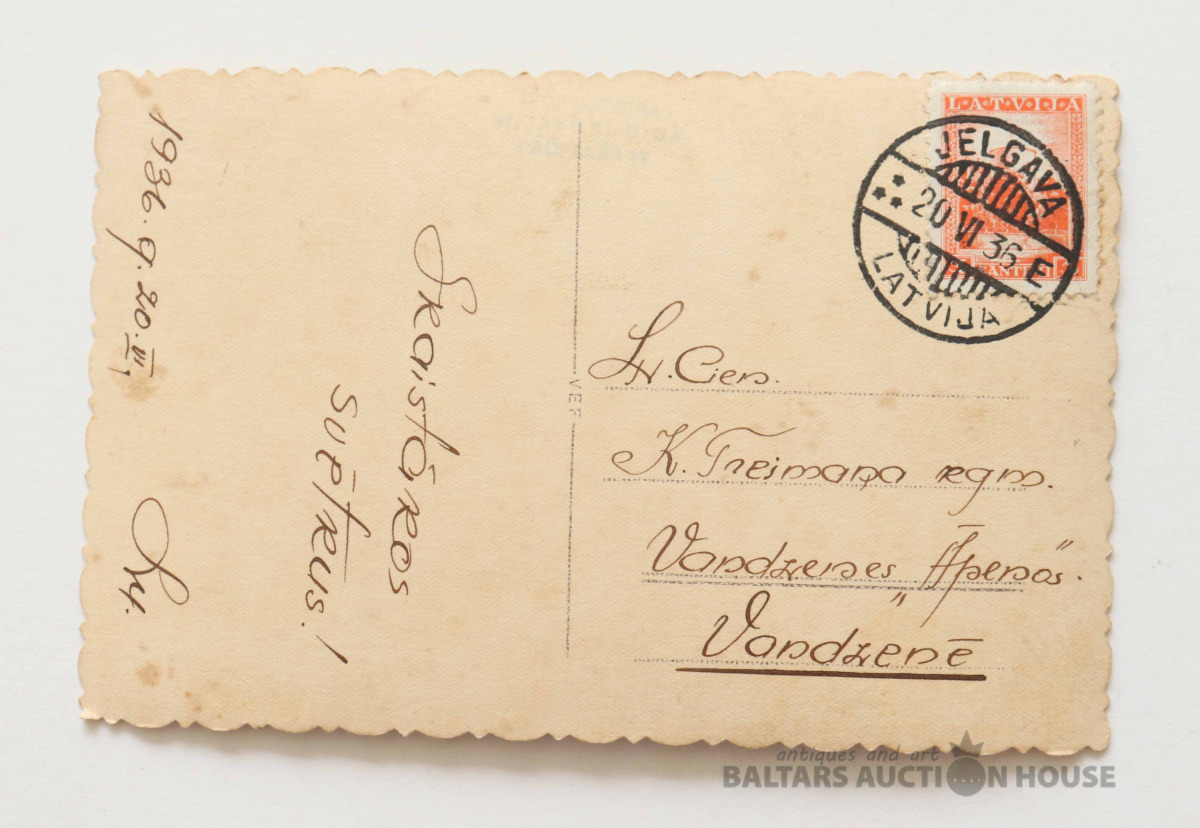 1936. g. 20. VI,
Skaistāкos
svētkus!
LATVIJA
JELGAVA
20 VI 36 E
LATVIJA
VEF
Lv. Cien.
K. Treimaņa kgm.
Vandzenes „Āpenos".
Vandzenē
antiques and art
BALTARS AUCTION HOUSE